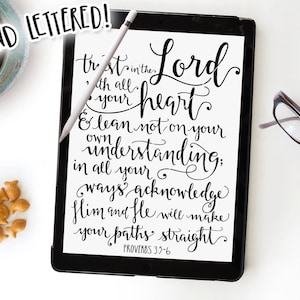 ND LETTERED!
trust in the Lord
with all
your heart
& lean not on your
own
understanding;
in all your
ways acknowledge
Him and He will make
your paths straight
PROVERBS 3:5-6